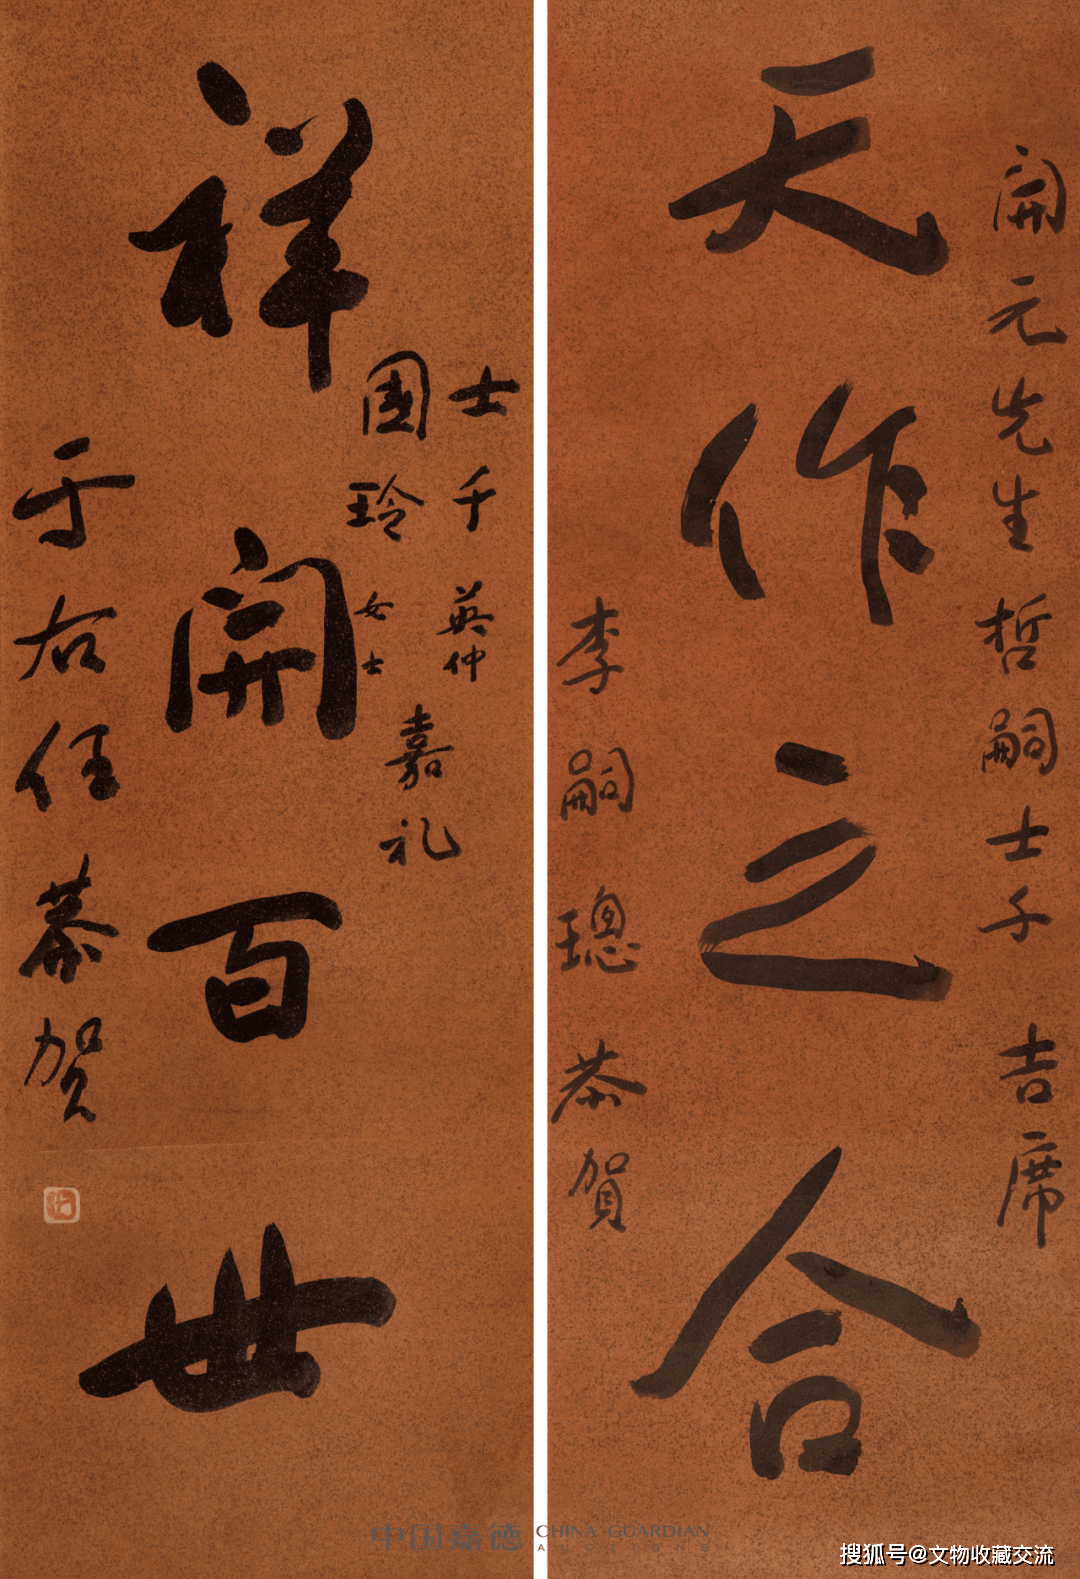 開元先生哲嗣士千吉席
天作之合
李嗣璁恭賀
士千英仲
國玲女士
嘉礼
祥開百世
于右任恭贺
中国嘉德 CHINA GUARDIAN
AUCTIONS
搜狐号@文物收藏交流